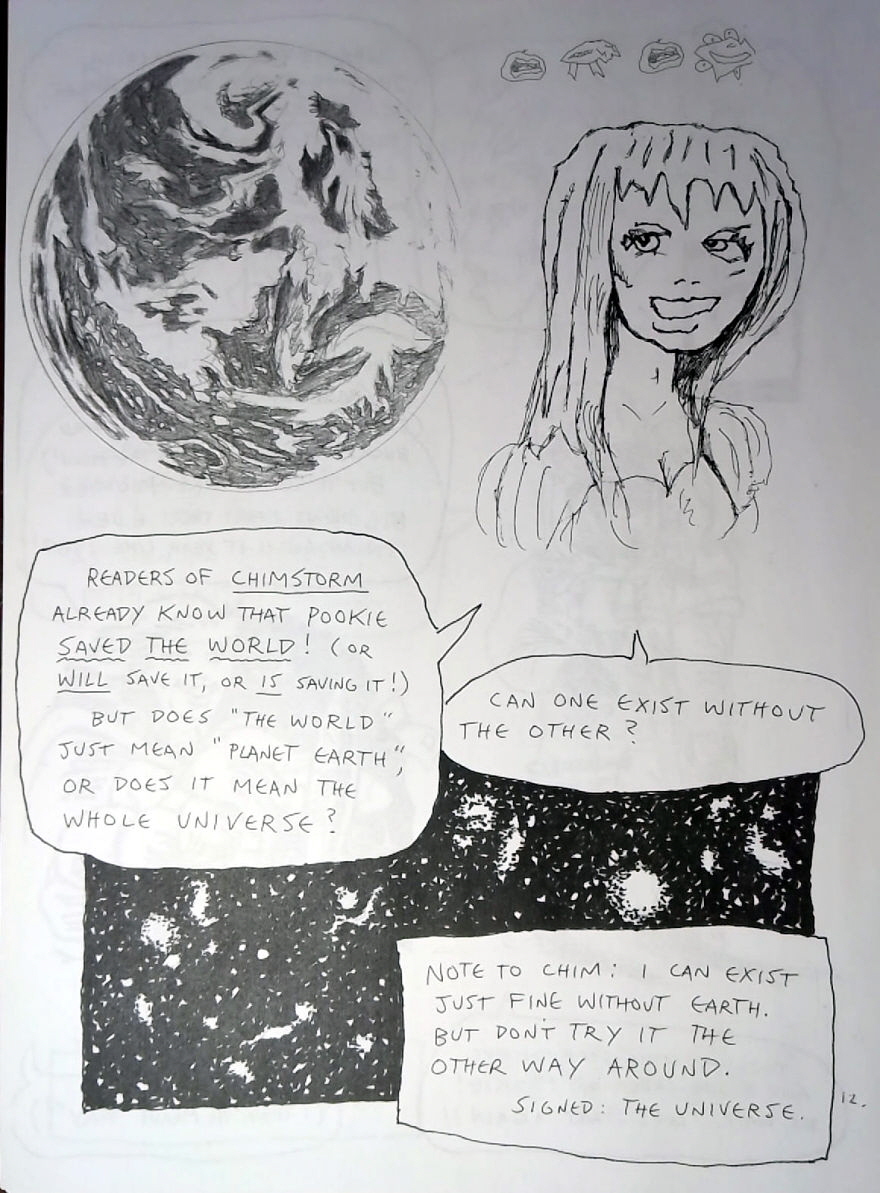 READERS OF CHIMSTORM
ALREADY KNOW THAT POOKIE
SAVED THE WORLD! (OR
WILL SAVE IT, OR IS SAVING IT!)
BUT DOES "THE WORLD"
JUST MEAN "PLANET EARTH",
OR DOES IT MEAN THE
WHOLE UNIVERSE?
CAN ONE EXIST WITHOUT
THE OTHER?
NOTE TO CHIM: I CAN EXIST
JUST FINE WITHOUT EARTH.
BUT DON'T TRY IT THE
OTHER WAY AROUND.
SIGNED: THE UNIVERSE.
12.